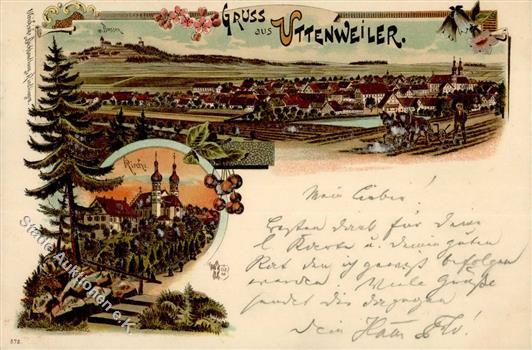 GRUSS AUS UTTENWEILER.
Bussen
Kirche
Mein Lieber!
Besten Dank für deine
l. Karte u. deinen guten
Rat den ich gewiss befolgen
werden Viele Grüße
sendet dir dagegen
Dein
572.